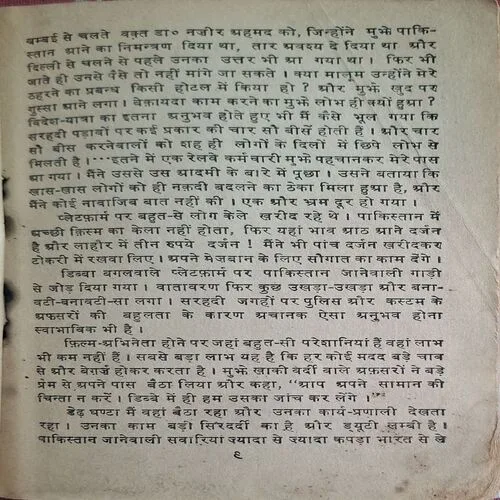 बम्बई से चलते वक़्त डा० नज़ीर अहमद को, जिन्होंने मुझे पाकि-
स्तान आने का निमन्त्रण दिया था, तार अवश्य दे दिया था और
दिल्ली से चलने से पहले उनका उत्तर भी आ गया था । फिर भी
जाते ही उनसे पैसे तो नहीं मांगे जा सकते । क्या मालूम उन्होंने मेरे
ठहरने का प्रबन्ध किसी होटल में किया हो ? और मुझे खुद पर
गुस्सा आने लगा । बेक़ायदा काम करने का मुझे लोभ ही क्यों हुआ ?
विदेश-यात्रा का इतना अनुभव होते हुए भी मैं कैसे भूल गया कि
सरहदी पड़ावों पर कई प्रकार की चार सौ बीसें होती हैं । और चार
सौ बीस करनेवालों को शह ही लोगों के दिलों में छिपे लोभ से
मिलती है ।···इतने में एक रेलवे कर्मचारी मुझे पहचानकर मेरे पास
आ गया । मैंने उससे उस आदमी के बारे में पूछा । उसने बताया कि
ख़ास-ख़ास लोगों को ही नक़दी बदलने का ठेका मिला हुआ है, और
मैंने कोई नावाजिब बात नहीं की । एक और भ्रम दूर हो गया ।
प्लेटफ़ार्म पर बहुत-से लोग केले खरीद रहे थे । पाकिस्तान में
अच्छी क़िस्म का केला नहीं होता, फिर यहां भाव आठ आने दर्जन
है और लाहौर में तीन रुपये दर्जन ! मैंने भी पांच दर्जन खरीदकर
टोकरी में रखवा लिए । अपने मेज़बान के लिए सौगात का काम देंगे ।
डिब्बा बगलवाले प्लेटफ़ार्म पर पाकिस्तान जानेवाली गाड़ी
से जोड़ दिया गया । वातावरण फिर कुछ उखड़ा-उखड़ा और बना-
वटी-बनावटी-सा लगा । सरहदी जगहों पर पुलिस और कस्टम के
अफसरों की बहुलता के कारण अचानक ऐसा अनुभव होना
स्वाभाविक भी है ।
फ़िल्म-अभिनेता होने पर जहां बहुत-सी परेशानियां हैं वहां लाभ
भी कम नहीं हैं । सबसे बड़ा लाभ यह है कि हर कोई मदद बड़े चाव
से और बेग़र्ज होकर करता है । मुझे ख़ाकी वर्दी वाले अफ़सरों ने बड़े
प्रेम से अपने पास बैठा लिया और कहा, "आप अपने सामान की
चिन्ता न करें । डिब्बे में ही हम उसका जांच कर लेंगे ।"
डेढ़ घण्टा मैं वहां बैठा रहा और उनका कार्य-प्रणाली देखता
रहा । उनका काम बड़ी सिरदर्दी का है और ड्यूटी लम्बी है ।
पाकिस्तान जानेवाली सवारियां ज़्यादा से ज़्यादा कपड़ा भारत से ले
९